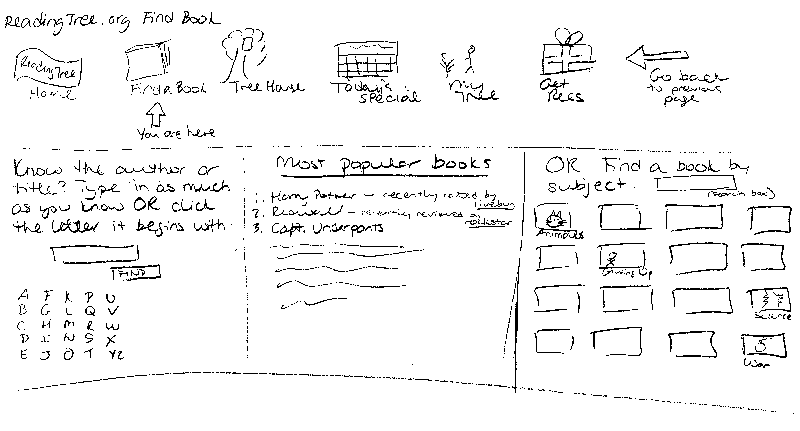 ReadingTree.org Find Book
ReadingTree
Home
Find a Book
Tree House
Today's
Special
My
Tree
Get
Go back
to previous
page
You are here
Know the author or
title? Type in as much
as you know OR click
the letter it begins with.
FIND
A F K P U
B G L Q V
C H M R W
D I N S X
E J O T YZ
Most popular books
1. Harry Potter – recently rated by
2. – recently reviewed by
rockstar
3. Capt. Underpants
OR Find a book by
subject.
(search box)
Animals
Growing Up
Science
War